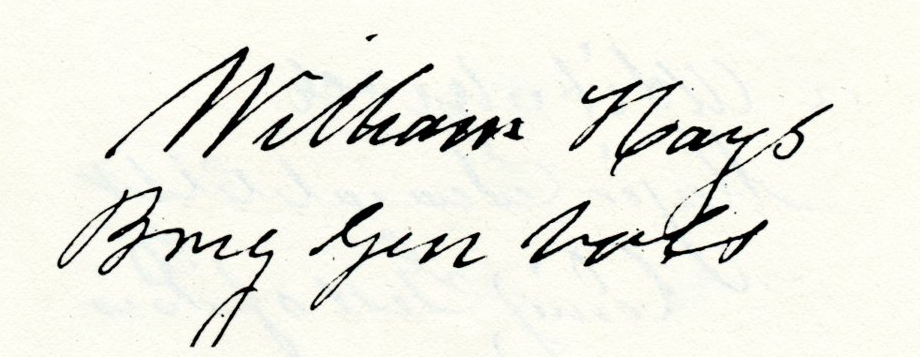 William Hays
Brig Gen Vols